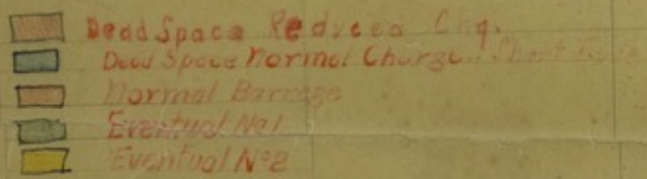 Dead Space Reduced Chg.
Dead Space Normal Charge.. Short Fuze
Normal Barrage
Eventual No1
Eventual No2